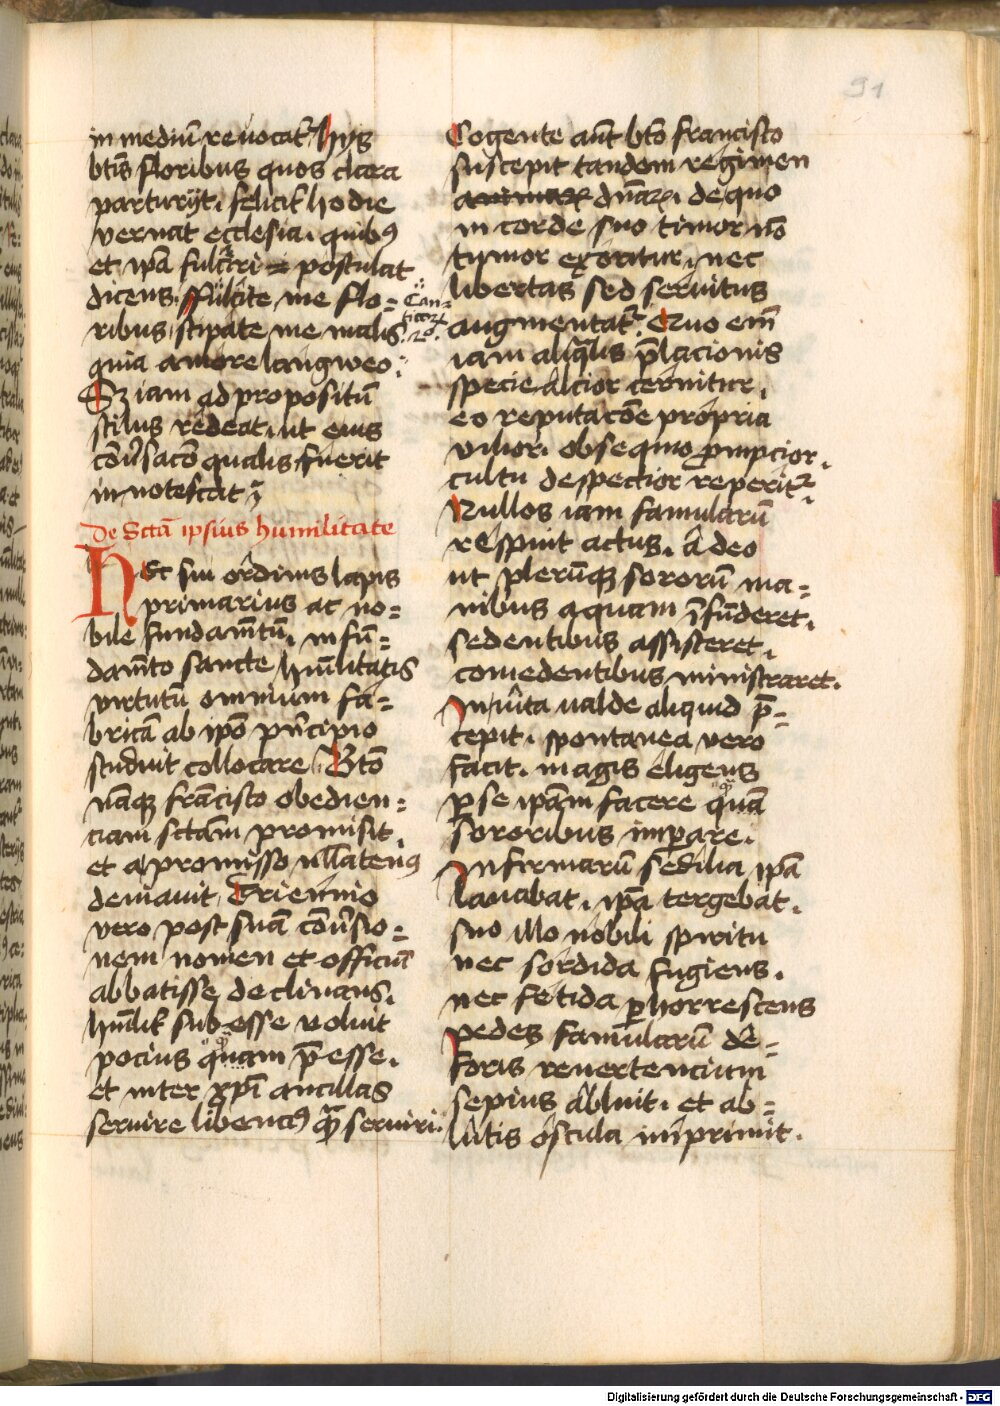 91
in mediū reuocatʳ hijs
btīs floribus quos clara
parturijt. felicitʳ hodie
vernat ecclesia. quibꝰ
et ip̄a fulciri postulat
dicens. Fulcite me flo=
ribus. stipate me malis.
quia amore langweo.
Can=
ticoꝝ
2º.
Sꝫ iam ad propositū
stilus redeat. ut eius
cōuersacō qualis fuerit
innotescat.
De Sctā ipsius humilitate
Hec sui ordinis lapis
primarius ac no=
bile fundamtū. in fun=
damto sancte hūilitatis
virtutū omnium fa=
bricā ab ipō pn̄cipio
studuit collocare. Btō
nāqꝫ francisco obedien=
ciam sctām promisit.
et a promisso nllatenꝰ
deniauit. Triennio
vero post suā cōuersio=
nem nomen et officiū
abbatisse declinans.
hūilitʳ subesse uoluit
pocius quam p̄esse.
et inter xp̄i ancillas
seruire libenciꝰ qᵃ̄ seruiri.
Cogente aūt btō francisco
suscepit tandem regimen
dn̄aꝝ. de quo
in corde suo timor nō
tumor exoritur. nec
libertas sed seruitus
augmentatʳ. Quo em̄
iam aliqᵃlis p̄lacionis
specie alcior cernitur.
eo reputacōe propria
vilior. obsequio prompcior.
cultu despectior reperitʳ.
Nullos iam famularū
respuit actus. a deo
ut plerūqꝫ sororū ma=
nibus aquam īfūderet.
sedentibus assisteret.
comedentibus ministraret.
Inuita ualde aliquid p̄=
cepit. spontanea vero
facit. magis eligens
ꝑ se ipām facere quā
sororibus imꝑare.
Infirmarū sedilia ipā
lauabat. ipā tergebat.
suo illo nobili spiritu
nec sordida fugiens.
nec fetida ꝑhorrescens
pedes famularū de=
foris reuertencium
sepius abluit. et ab=
lutis oscula imprimit.
Digitalisierung gefördert durch die Deutsche Forschungsgemeinschaft - DFG